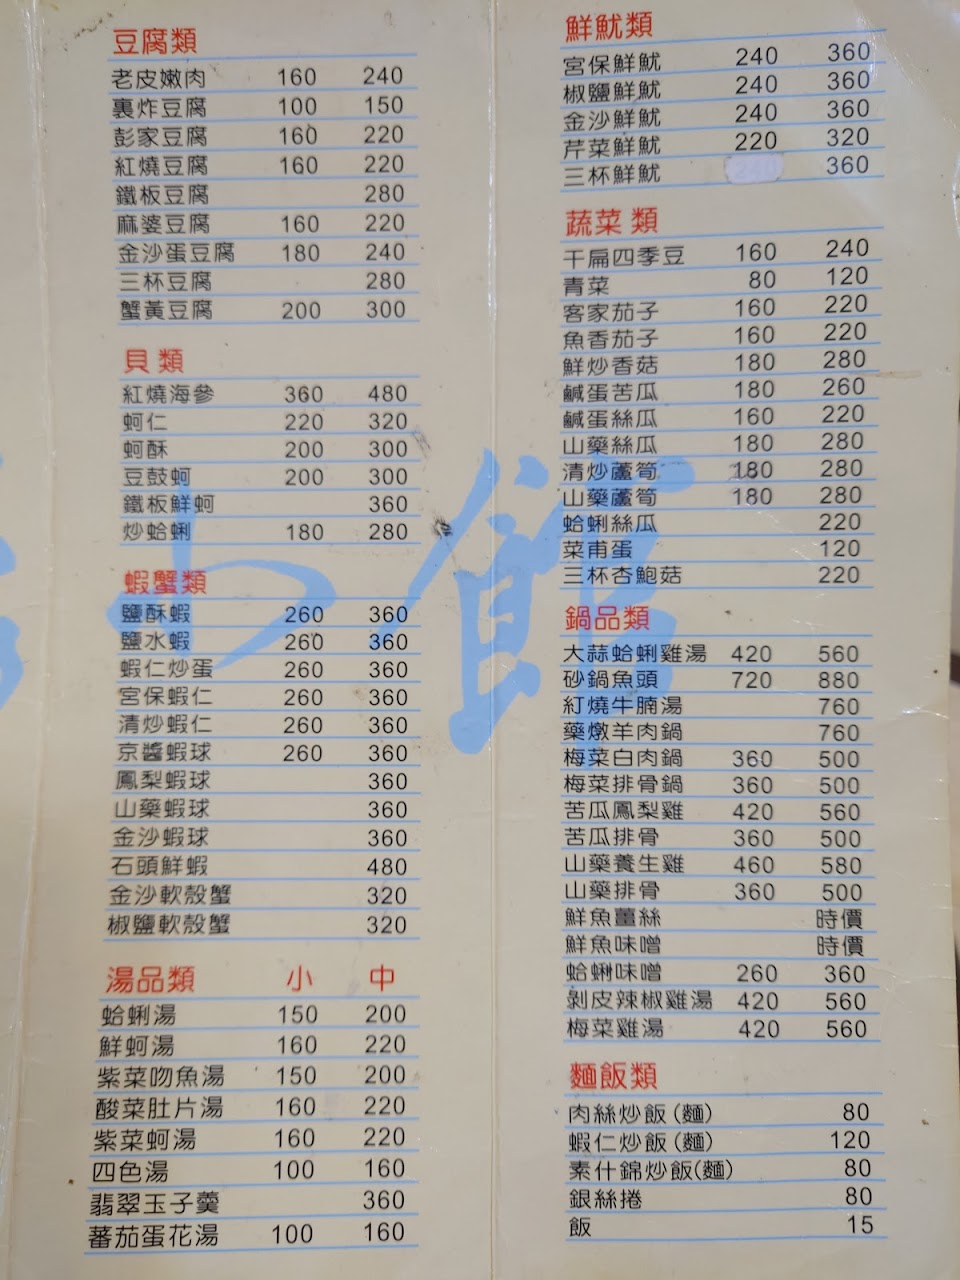 豆腐類
老皮嫩肉 160 240
裏炸豆腐 100 150
彭家豆腐 160 220
紅燒豆腐 160 220
鐵板豆腐 280
麻婆豆腐 160 220
金沙蛋豆腐 180 240
三杯豆腐 280
蟹黃豆腐 200 300
貝類
紅燒海參 360 480
蚵仁 220 320
蚵酥 200 300
豆鼓蚵 200 300
鐵板鮮蚵 360
炒蛤蜊 180 280
蝦蟹類
鹽酥蝦 260 360
鹽水蝦 260 360
蝦仁炒蛋 260 360
宮保蝦仁 260 360
清炒蝦仁 260 360
京醬蝦球 260 360
鳳梨蝦球 360
山藥蝦球 360
金沙蝦球 360
石頭鮮蝦 480
金沙軟殼蟹 320
椒鹽軟殼蟹 320
湯品類 小 中
蛤蜊湯 150 200
鮮蚵湯 160 220
紫菜吻魚湯 150 200
酸菜肚片湯 160 220
紫菜蚵湯 160 220
四色湯 100 160
翡翠玉子羹 360
蕃茄蛋花湯 100 160
鮮魷類
宮保鮮魷 240 360
椒鹽鮮魷 240 360
金沙鮮魷 240 360
芹菜鮮魷 220 320
三杯鮮魷 240 360
蔬菜類
干扁四季豆 160 240
青菜 80 120
客家茄子 160 220
魚香茄子 160 220
鮮炒香菇 180 280
鹹蛋苦瓜 180 260
鹹蛋絲瓜 160 220
山藥絲瓜 180 280
清炒蘆筍 180 280
山藥蘆筍 180 280
蛤蜊絲瓜 220
菜甫蛋 120
三杯杏鮑菇 220
鍋品類
大蒜蛤蜊雞湯 420 560
砂鍋魚頭 720 880
紅燒牛腩湯 760
藥燉羊肉鍋 760
梅菜白肉鍋 360 500
梅菜排骨鍋 360 500
苦瓜鳳梨雞 420 560
苦瓜排骨 360 500
山藥養生雞 460 580
山藥排骨 360 500
鮮魚薑絲 時價
鮮魚味噌 時價
蛤蜊味噌 260 360
剝皮辣椒雞湯 420 560
梅菜雞湯 420 560
麵飯類
肉絲炒飯(麵) 80
蝦仁炒飯(麵) 120
素什錦炒飯(麵) 80
銀絲捲 80
飯 15
館